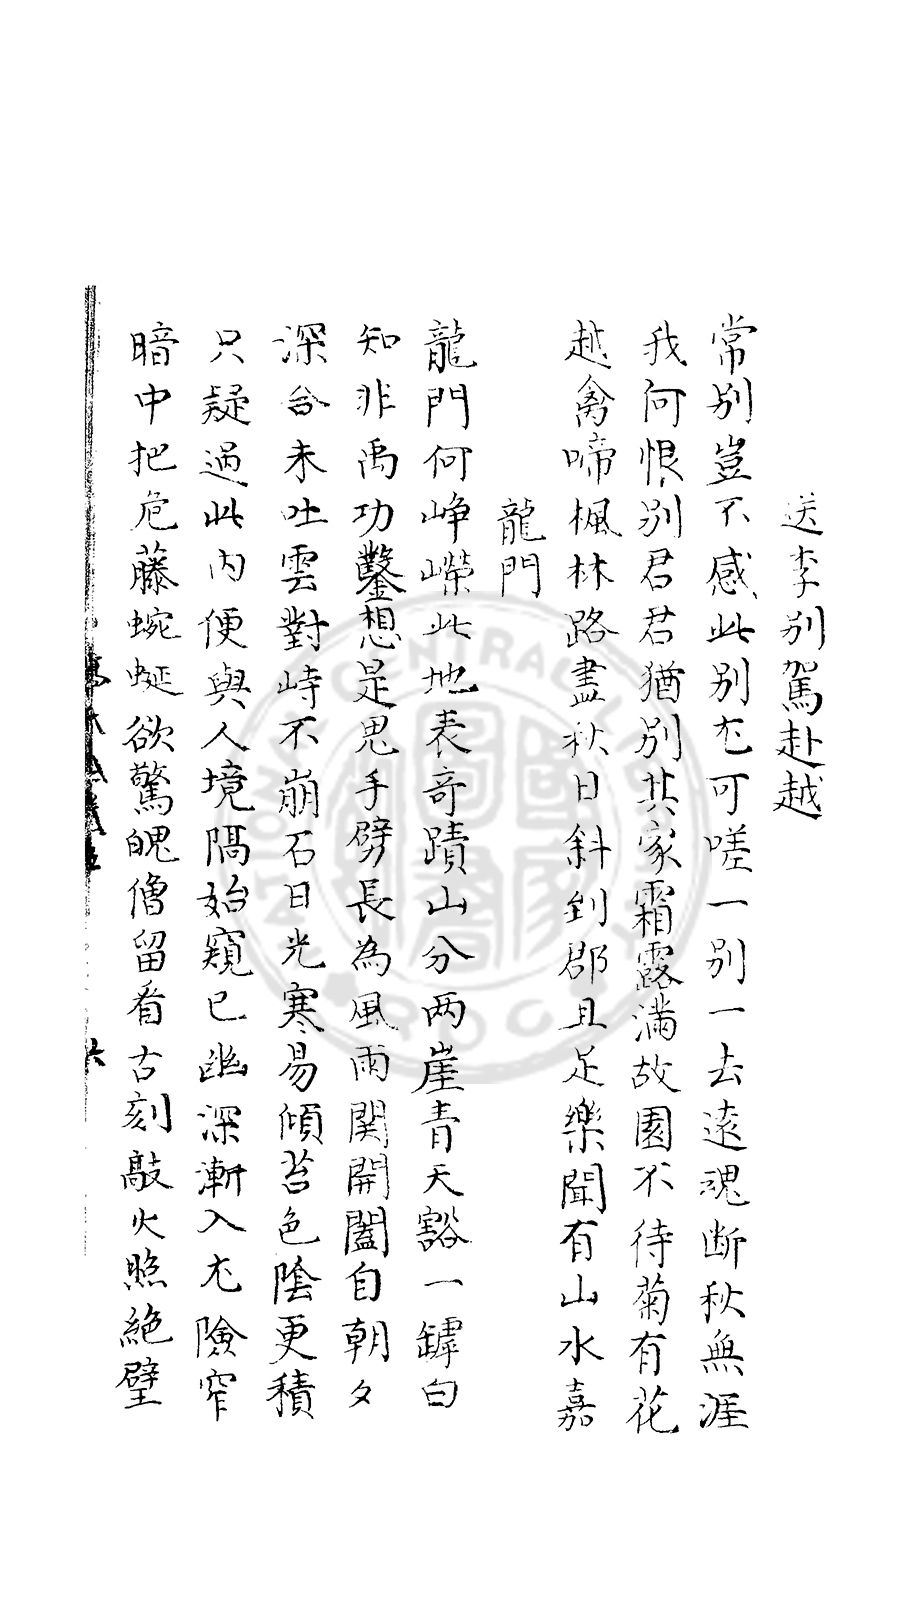 送李别駕赴越
常别豈不感此别尤可嗟一别一去遠魂断秋無涯
我何恨别君君猶别其家霜露滿故園不待菊有花
越禽啼楓林路盡秋日斜到郡且足樂聞有山水嘉
龍門
龍門何崢嶸此地表奇蹟山分两崖青天豁一罅白
知非禹功鑿想是鬼手劈長為風雨関開闔自朝夕
深谷未吐雲對峙不崩石日光寒易傾苔色陰更積
只疑過此内便與人境隔始窺已幽深漸入尤險窄
暗中把危藤蜿蜒欲驚魄僧留看古刻敲火照絶壁
六